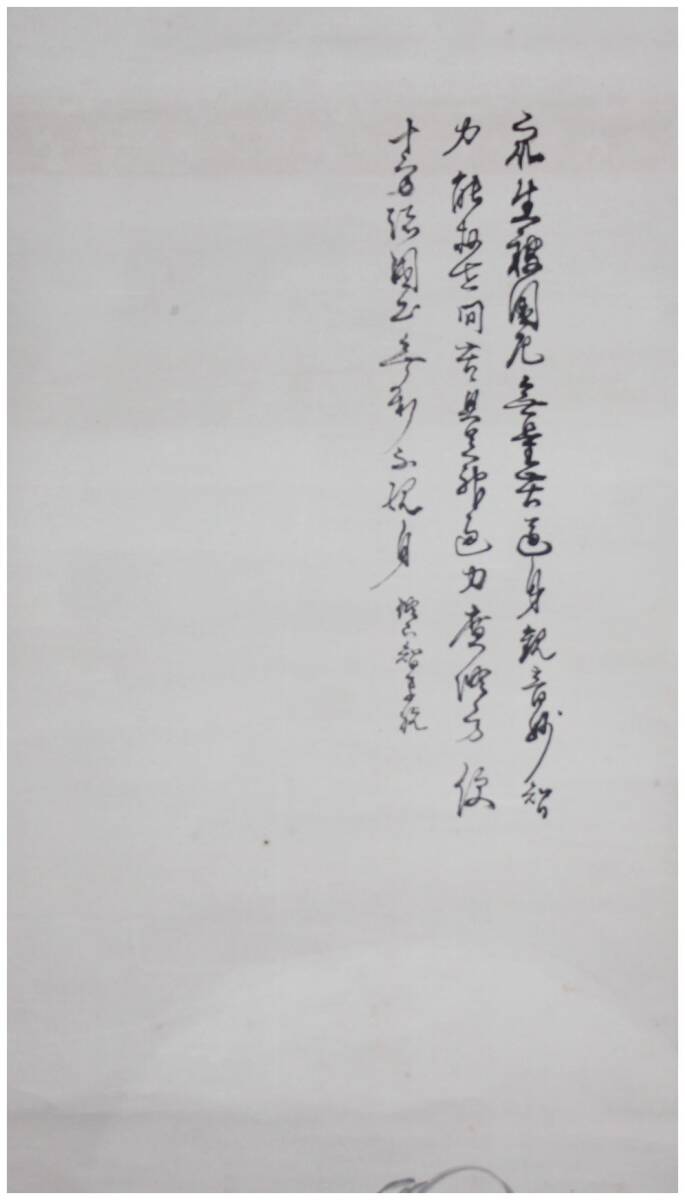 衆生被困厄無量苦逼身觀音妙智
力能救世間苦具足神通力廣修智方便
十方諸國土無刹不現身